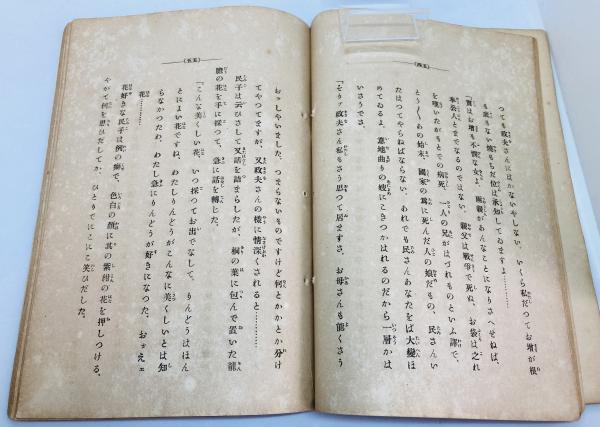 (五四)
つても政夫さんにはかないやしない。いくら私だつてお増が根
も底もない焼もちだ位は承知してゐますよ………
「實はお增も不憫な女よ。兩親があんなことになりさへせねば、
奉公人とまでなるのではない。親父は戰爭で死ぬ、お袋は之れ
を嘆いたがもとでの病死、一人の兄がはづれものといふ譯で、
とう〳〵あの始末。國家の爲に死んだ人の娘だもの、民さんい
たはつてやらねばならない。あれでも民さんあなたをば大變ほ
めてゐるよ。意地曲りの嫂にこきつかはれるのだから一層かは
いさうでさ。
「そりァ政夫さん私もさう思つて居ますさ。お母さんも能くさう
(五五)
おつしやいました。つまらないものですけど何とかかとか分け
てやつてますが、又政夫さんの樣に情深くされると………
民子は云ひさして又話を詰まらしたが、桐の葉に包んで置いた龍
膽の花を手に採つて、急に話を轉じた。
「こんな美くしい花、いつ採つてお出でなして。りんどうはほん
とによい花ですね。わたしりんどうがこんなに美くしいとは知
らなかつたわ。わたし急にりんどうが好きになつた。おゝえェ
花………
花好きな民子は例の癖で、色白の顏に其の紫紺の花を押しつける。
やがて何を思ひだしてか、ひとりでにこにこ笑ひだした。